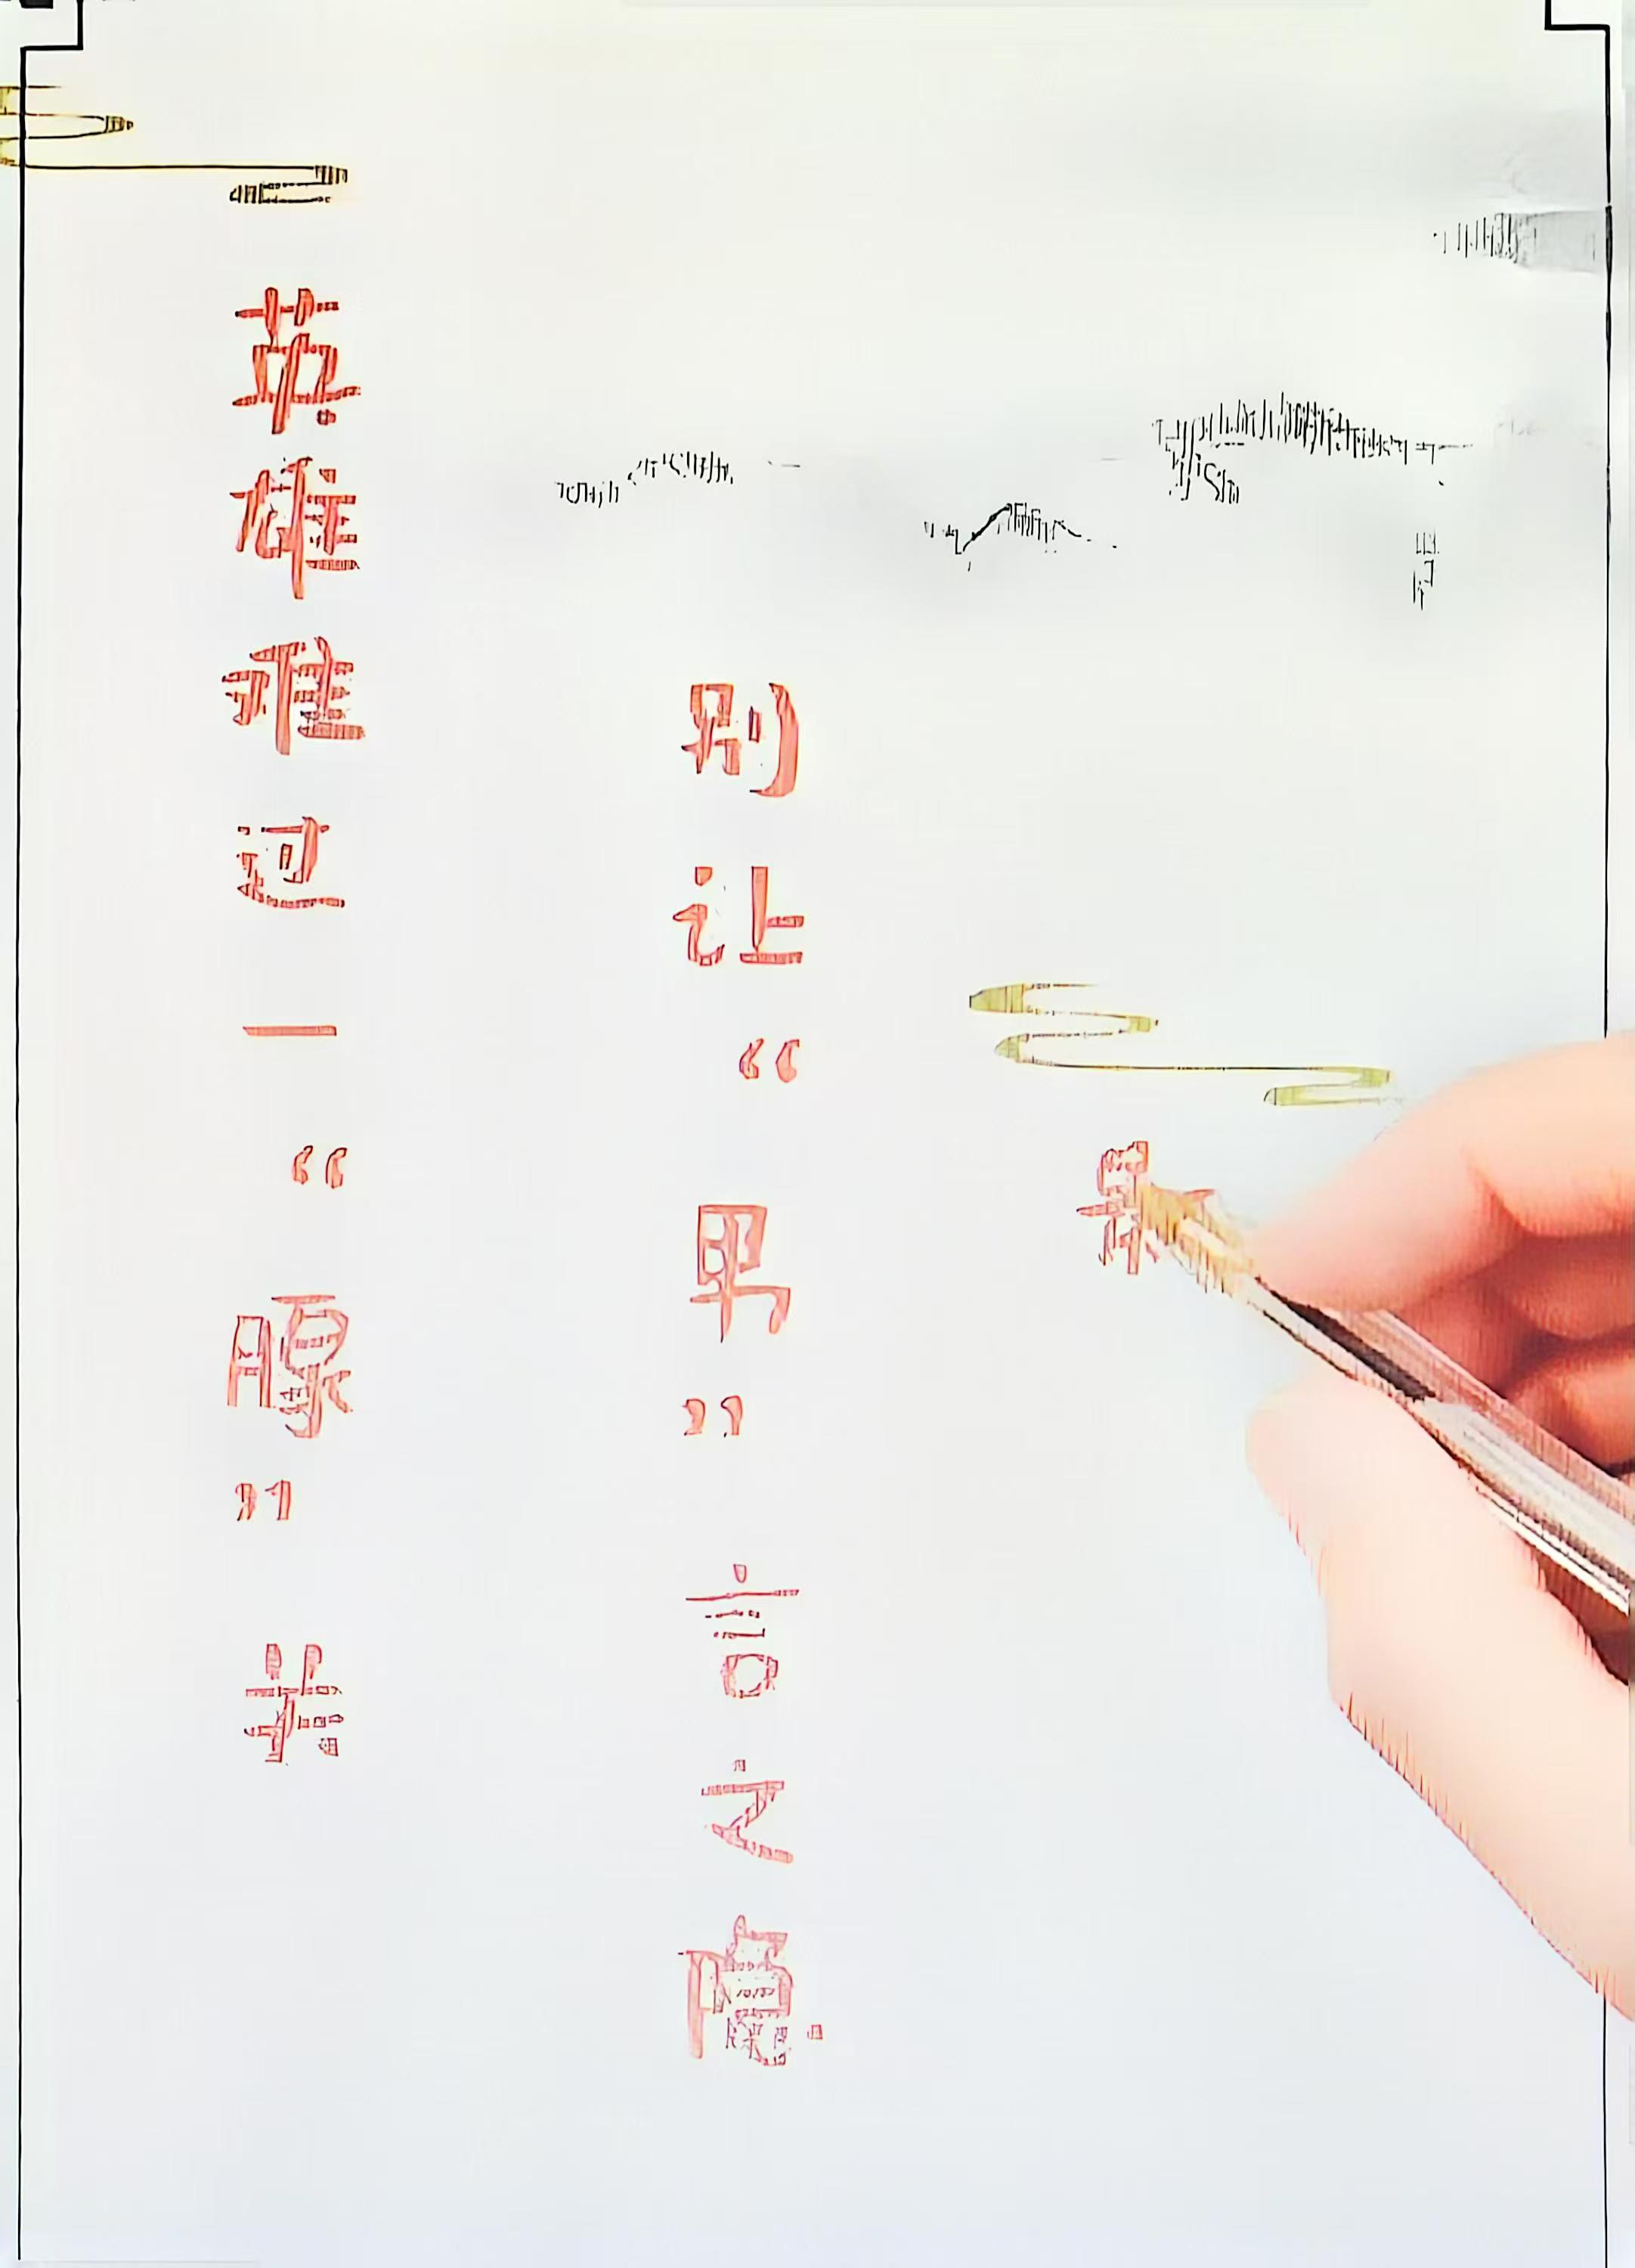 英雄难过一“腺”关
别让“男”言之隐